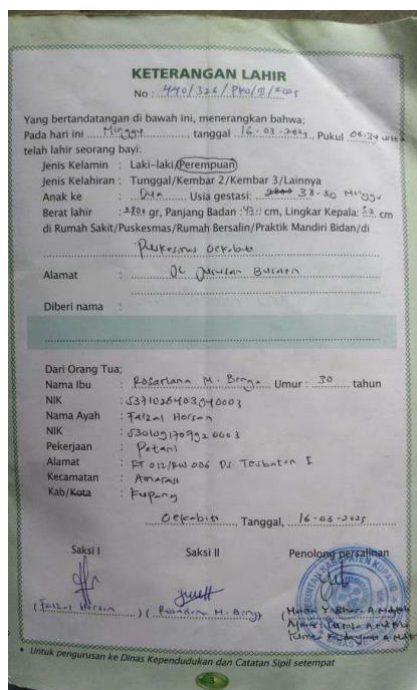 KETERANGAN LAHIR
No : 440/326/PKO/III/2025
Yang bertandatangan di bawah ini, menerangkan bahwa;
Pada hari ini Minggu, tanggal 16-03-2025, Pukul 04:34
telah lahir seorang bayi:
Jenis Kelamin : Laki-laki/Perempuan
Jenis Kelahiran : Tunggal/Kembar 2/Kembar 3/Lainnya
Anak ke : Dua Usia gestasi: Minggu
Berat lahir : gr, Panjang Badan : cm, Lingkar Kepala: cm
di Rumah Sakit/Puskesmas/Rumah Bersalin/Praktik Mandiri Bidan/di
Puskesmas Oekabiti
Alamat : Jl.
Diberi nama :
Dari Orang Tua;
Nama Ibu : Rosariana M. Umur : 30 tahun
NIK : 5371026403040003
Nama Ayah : Faizal
NIK :
Pekerjaan : Petani
Alamat : RT 012/RW 006 Ds Tesbatan I
Kecamatan : Amarasi
Kab/Kota : Kupang
Oekabiti, Tanggal, 16-03-2025
Saksi I Saksi II Penolong persalinan
(Faizal ) (Rosariana M. )
* Untuk pengurusan ke Dinas Kependudukan dan Catatan Sipil setempat